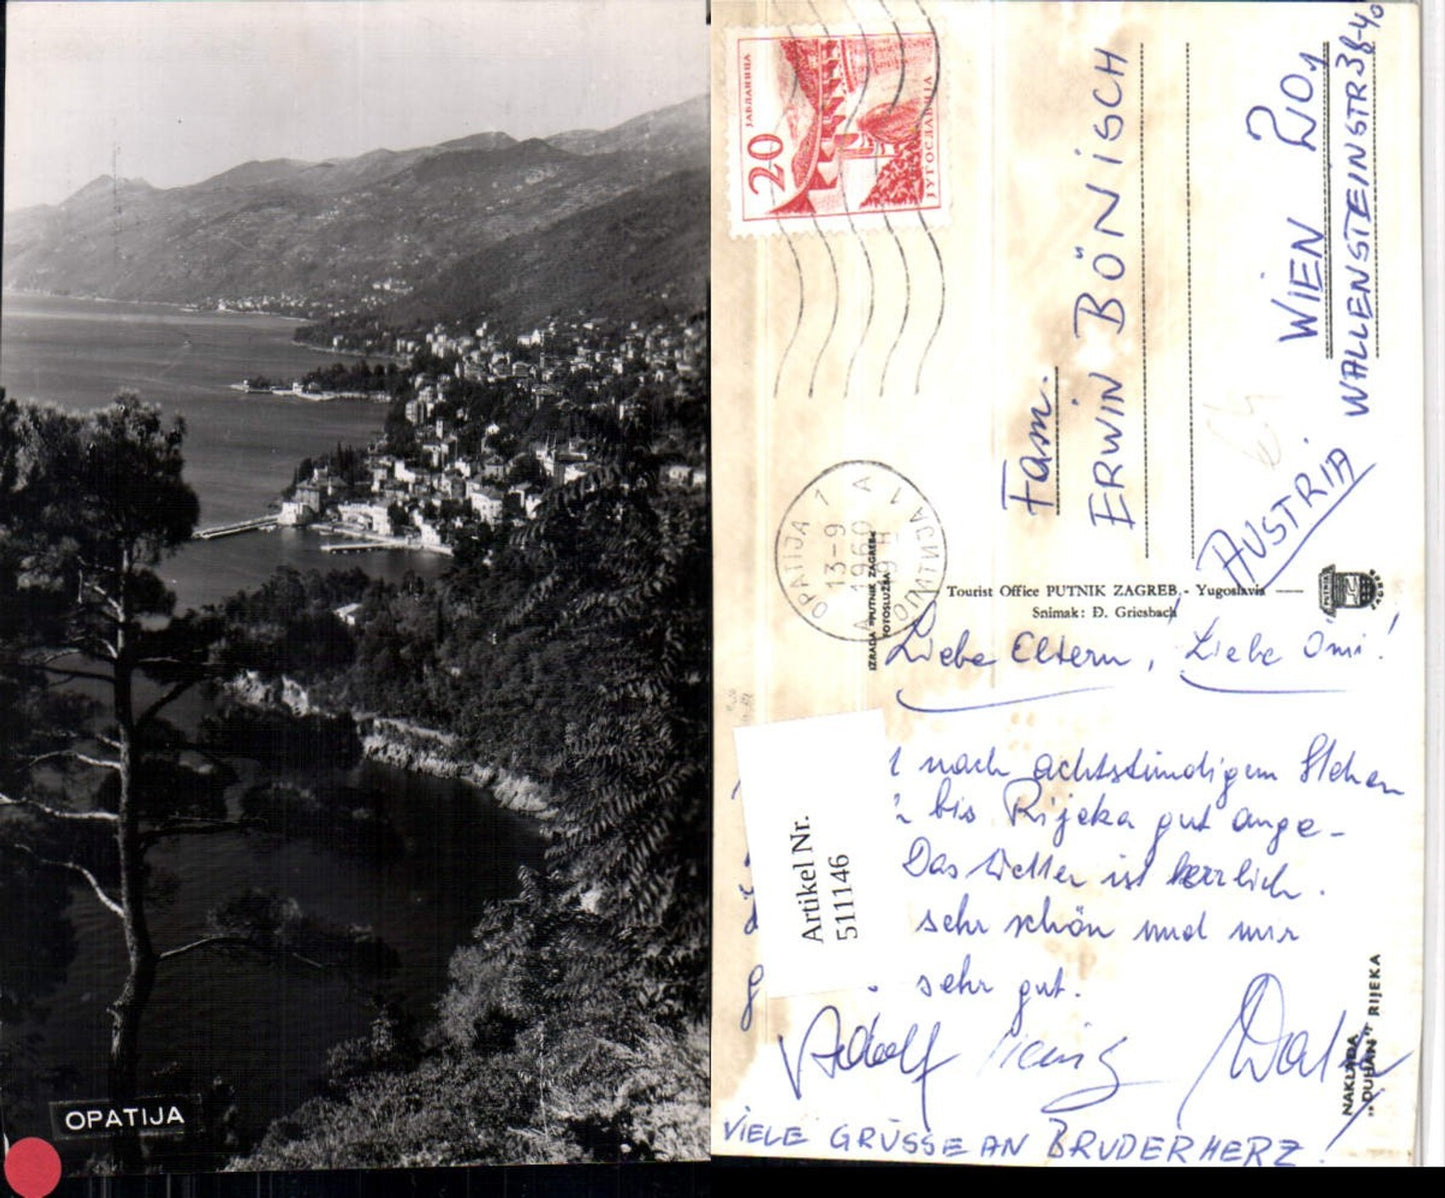 OPATIJA
20
ЈАБЛАНИЦА
ЈУГОСЛАВИЈА
OPATIJA 1
13-9
1960
19
A
ОПАТИЈА 1
A
Fam.
ERWIN BÖNISCH
WIEN
WALLENSTEINSTR 38-40
AUSTRIA
Tourist Office PUTNIK ZAGREB - Yugoslavia
Snimak: Đ. Griesbach
IZRADA "PUTNIK ZAGREB"
FOTOSLUŽBA
Liebe Eltern, Liebe Omi!
nach achtstündigem Stehen
bis Rijeka gut ange-
Das Wetter ist herrlich.
sehr schön und mir
sehr gut.
Adolf
VIELE GRÜSSE AN BRUDERHERZ!
Artikel Nr.
511146
NAKLADA
„DUHAN" RIJEKA